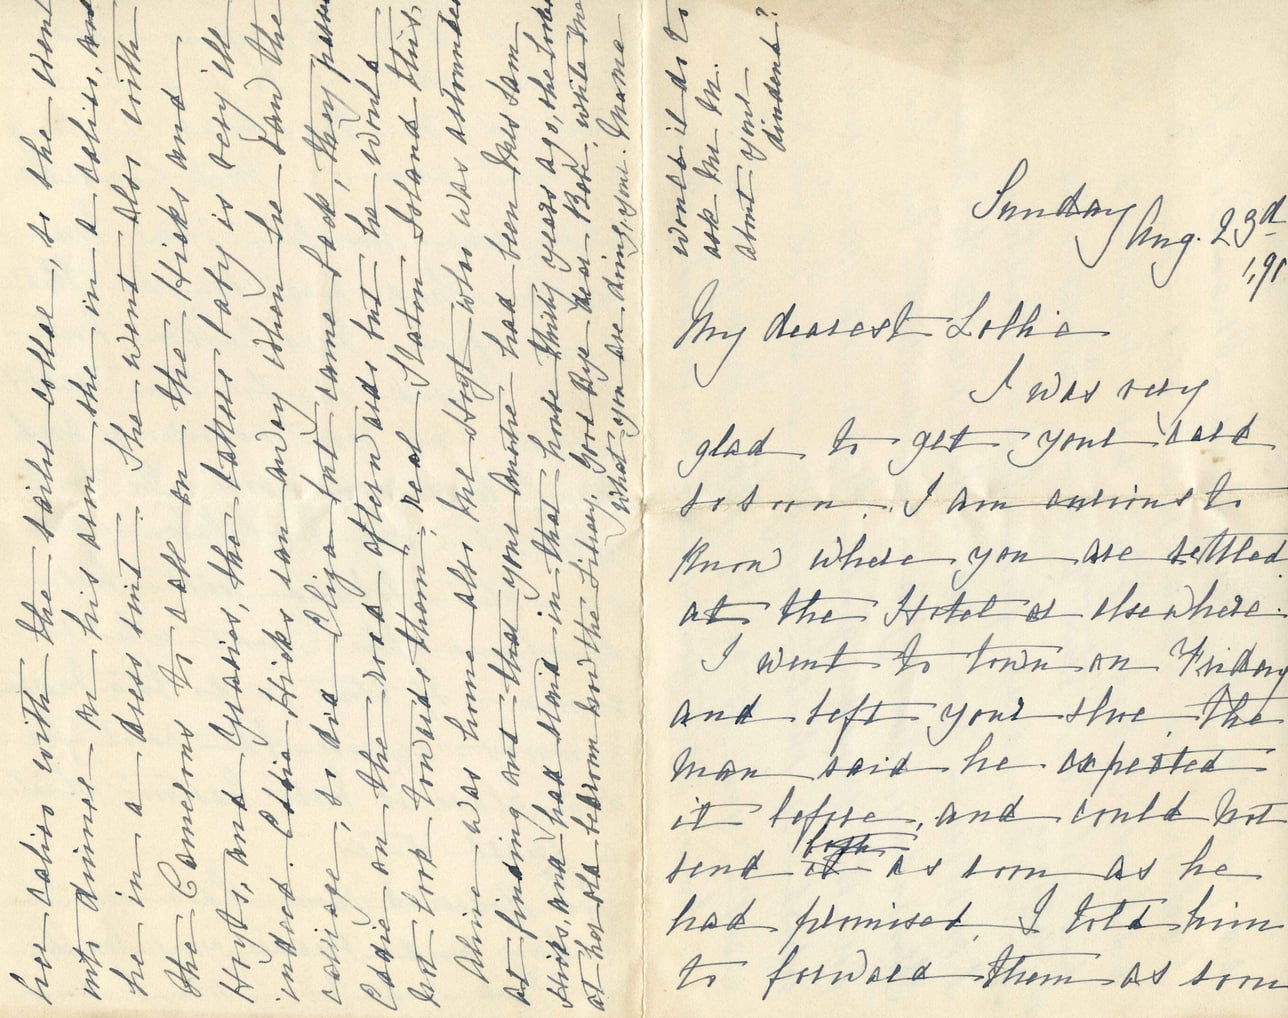 Sunday
Aug. 23d
1,91
My dearest Lottie
I was very
glad to get your card
so soon. I am anxious to
know where you are settled
at the Hotel or elsewhere.
I went to town on Friday
and left your shoe, the
man said he expected
it before, and could not
send it both as soon as he
had promised, I told him
to forward them as soon
her calico with the sailor collar, so she went
into dinner on his arm she in a calico, and
he in a dress suit. She went also with
the Camerons to call on the Hicks and
Hoyts, and Grasies, the latters baby is very ill
indeed. Eddie Hicks ran away when he saw the
carriage, so did Eliza but came back, they passed
Eddie on the road afterwards but he would
not look towards them, real Staten Island this,
Annie was home also Mr Hoyt who was astounded
at finding out that your Auntie had been Miss Sam
and had staid in that house thirty years ago, she looked
at her old bedroom and the Library. Good Bye dear Bebe, write me
what you are doing, your Mama
Would it do to
ask Mr M.
about your
dividend?